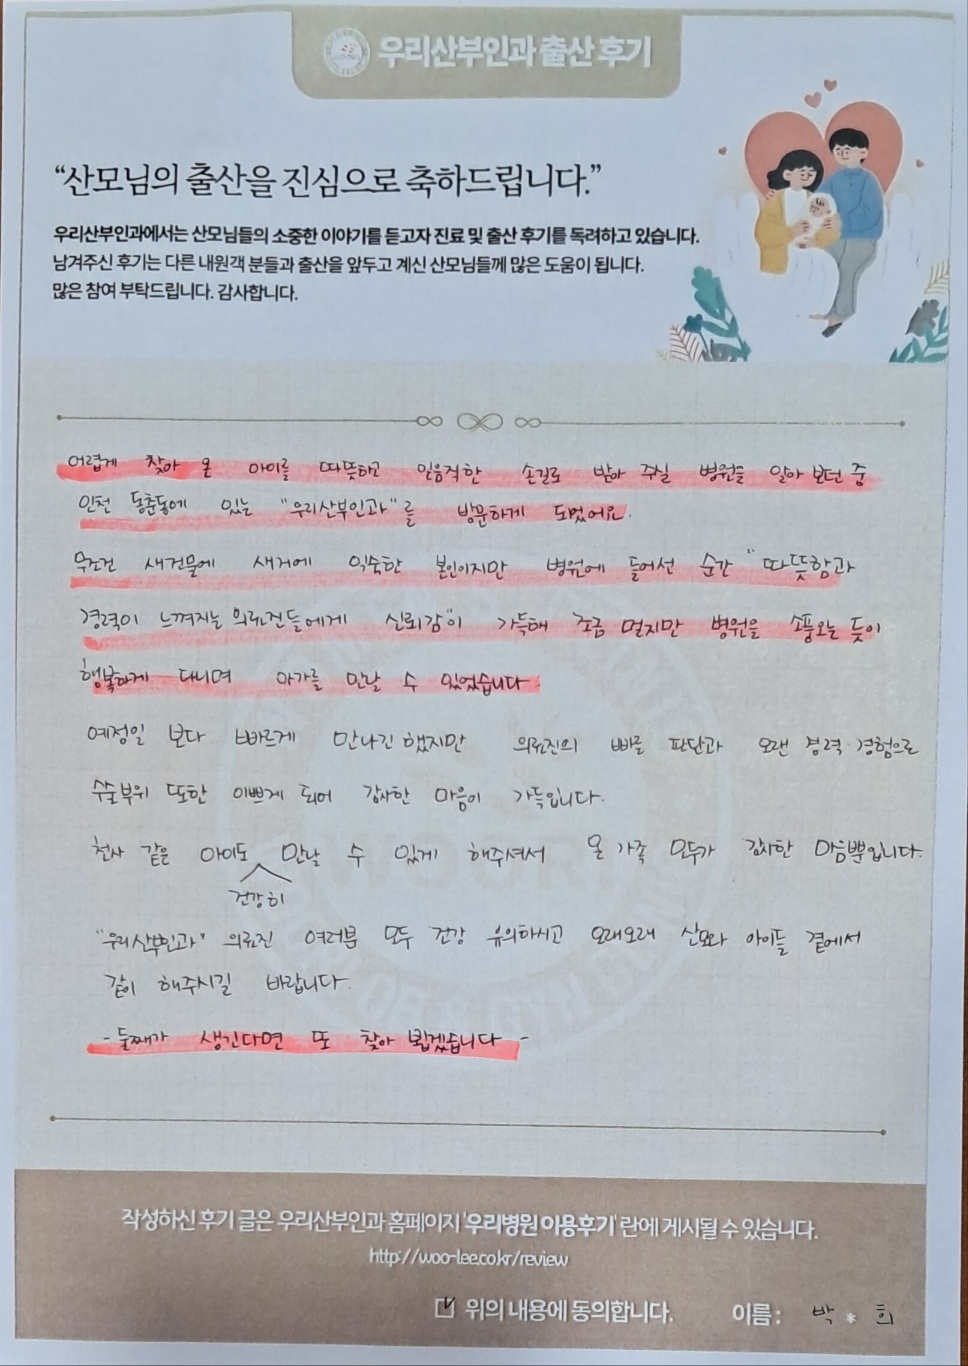 우리산부인과 출산 후기
“산모님의 출산을 진심으로 축하드립니다.”
우리산부인과에서는 산모님들의 소중한 이야기를 듣고자 진료 및 출산 후기를 독려하고 있습니다.
남겨주신 후기는 다른 내원객 분들과 출산을 앞두고 계신 산모님들께 많은 도움이 됩니다.
많은 참여 부탁드립니다. 감사합니다.
어렵게 찾아 온 아이를 따뜻하고 믿음직한 손길로 받아 주실 병원을 알아 보던 중
인천 동춘동에 있는 "우리산부인과"를 방문하게 되었어요.
무조건 새건물에 새거에 익숙한 본인이지만 병원에 들어선 순간 "따뜻함과
경력이 느껴지는 의료진들에게 신뢰감"이 가득해 조금 멀지만 병원을 소풍오는 듯이
행복하게 다니며 아가를 만날 수 있었습니다
예정일 보다 빠르게 만나긴 했지만 의료진의 빠른 판단과 오랜 경력·경험으로
수술부위 또한 이쁘게 되어 감사한 마음이 가득입니다.
천사 같은 아이도 만날 수 있게 해주셔서 온 가족 모두가 감사한 마음뿐입니다.
건강히
"우리산부인과" 의료진 여러분 모두 건강 유의하시고 오래오래 산모와 아이들 곁에서
같이 해주시길 바랍니다.
- 둘째가 생긴다면 또 찾아 뵙겠습니다 -
작성하신 후기 글은 우리산부인과 홈페이지 '우리병원 이용후기' 란에 게시될 수 있습니다.
http://woo-lee.co.kr/review
위의 내용에 동의합니다. 이름 : 박 * 희